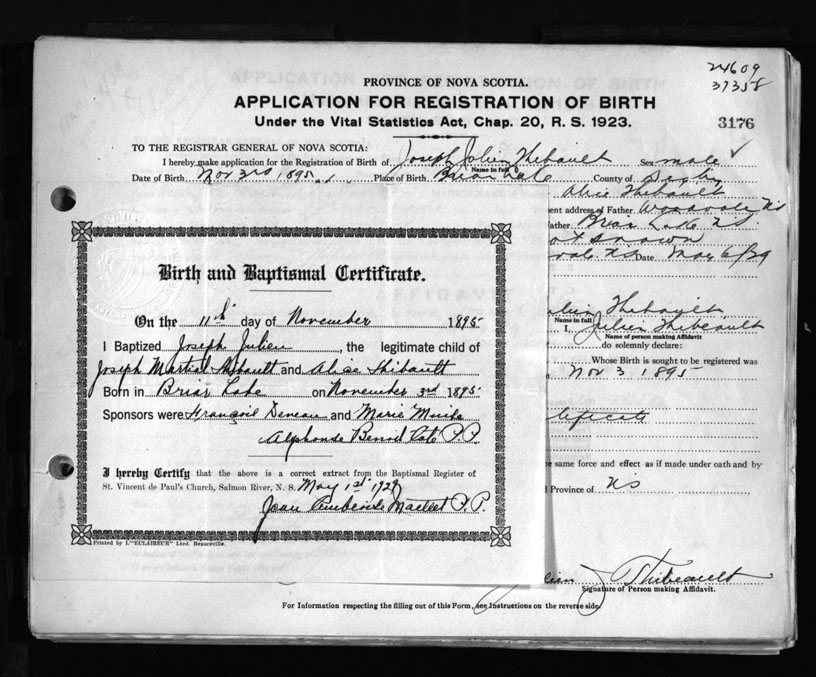 24609
37358
PROVINCE OF NOVA SCOTIA.
APPLICATION FOR REGISTRATION OF BIRTH
Under the Vital Statistics Act, Chap. 20, R. S. 1923.
3176
TO THE REGISTRAR GENERAL OF NOVA SCOTIA:
I hereby make application for the Registration of Birth of Joseph Julien Thibault Sex male
Name in full
Date of Birth Nov 3rd 1895. Place of Birth Briar Lake County of Digby
Alice Thibault
ent address of Father Woodvale NS
ather Briar Lake NS
ot known
vale NS Date May 6/29
Birth and Baptismal Certificate.
On the 11th day of November 1895
I Baptized Joseph Julien, the legitimate child of
Joseph Martial Thibault and Alice Thibault
Born in Briar Lake on November 3rd 1895
Sponsors were: François Deveau and Marie
Alphonse Benoit Cote P.P.
I hereby Certify that the above is a correct extract from the Baptismal Register of
St. Vincent de Paul's Church, Salmon River, N. S. May 1st 1929
Jean P.P.
Printed by L'"ECLAIREUR" Ltd. Beauceville.
ulien Thibault
Name in full
I, Julien Thibeault
Name of person making Affidavit
do solemnly declare:
Whose Birth is sought to be registered was
Nov 3 1895
ertificate
he same force and effect as if made under oath and by
Province of NS
lien J Thibeault
Signature of Person making Affidavit.
For Information respecting the filling out of this Form, see Instructions on the reverse side